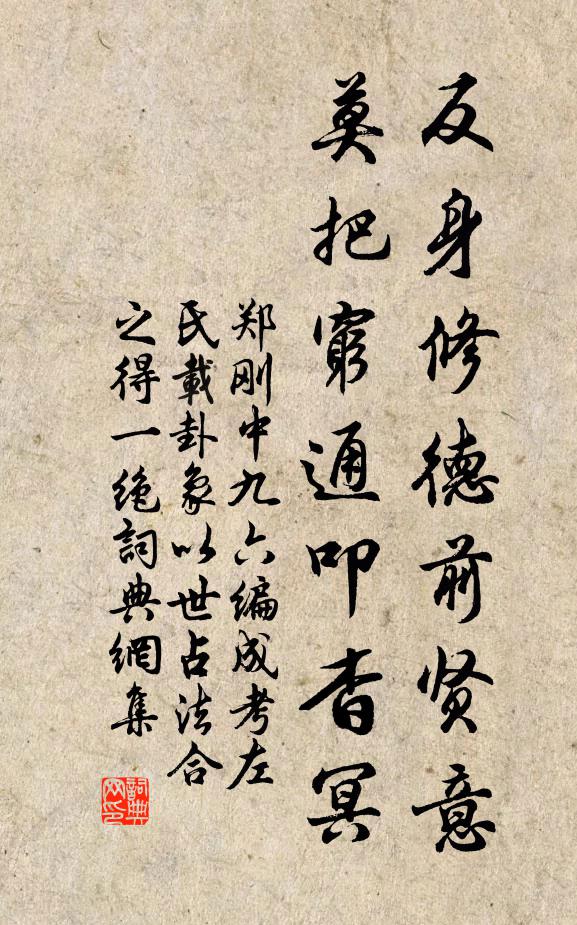 反身修德前贤意
莫把窮通叩杳冥
郑刚中九六编成考左
氏載卦象以世占法合
之得一绝詞典網集
詞典网印